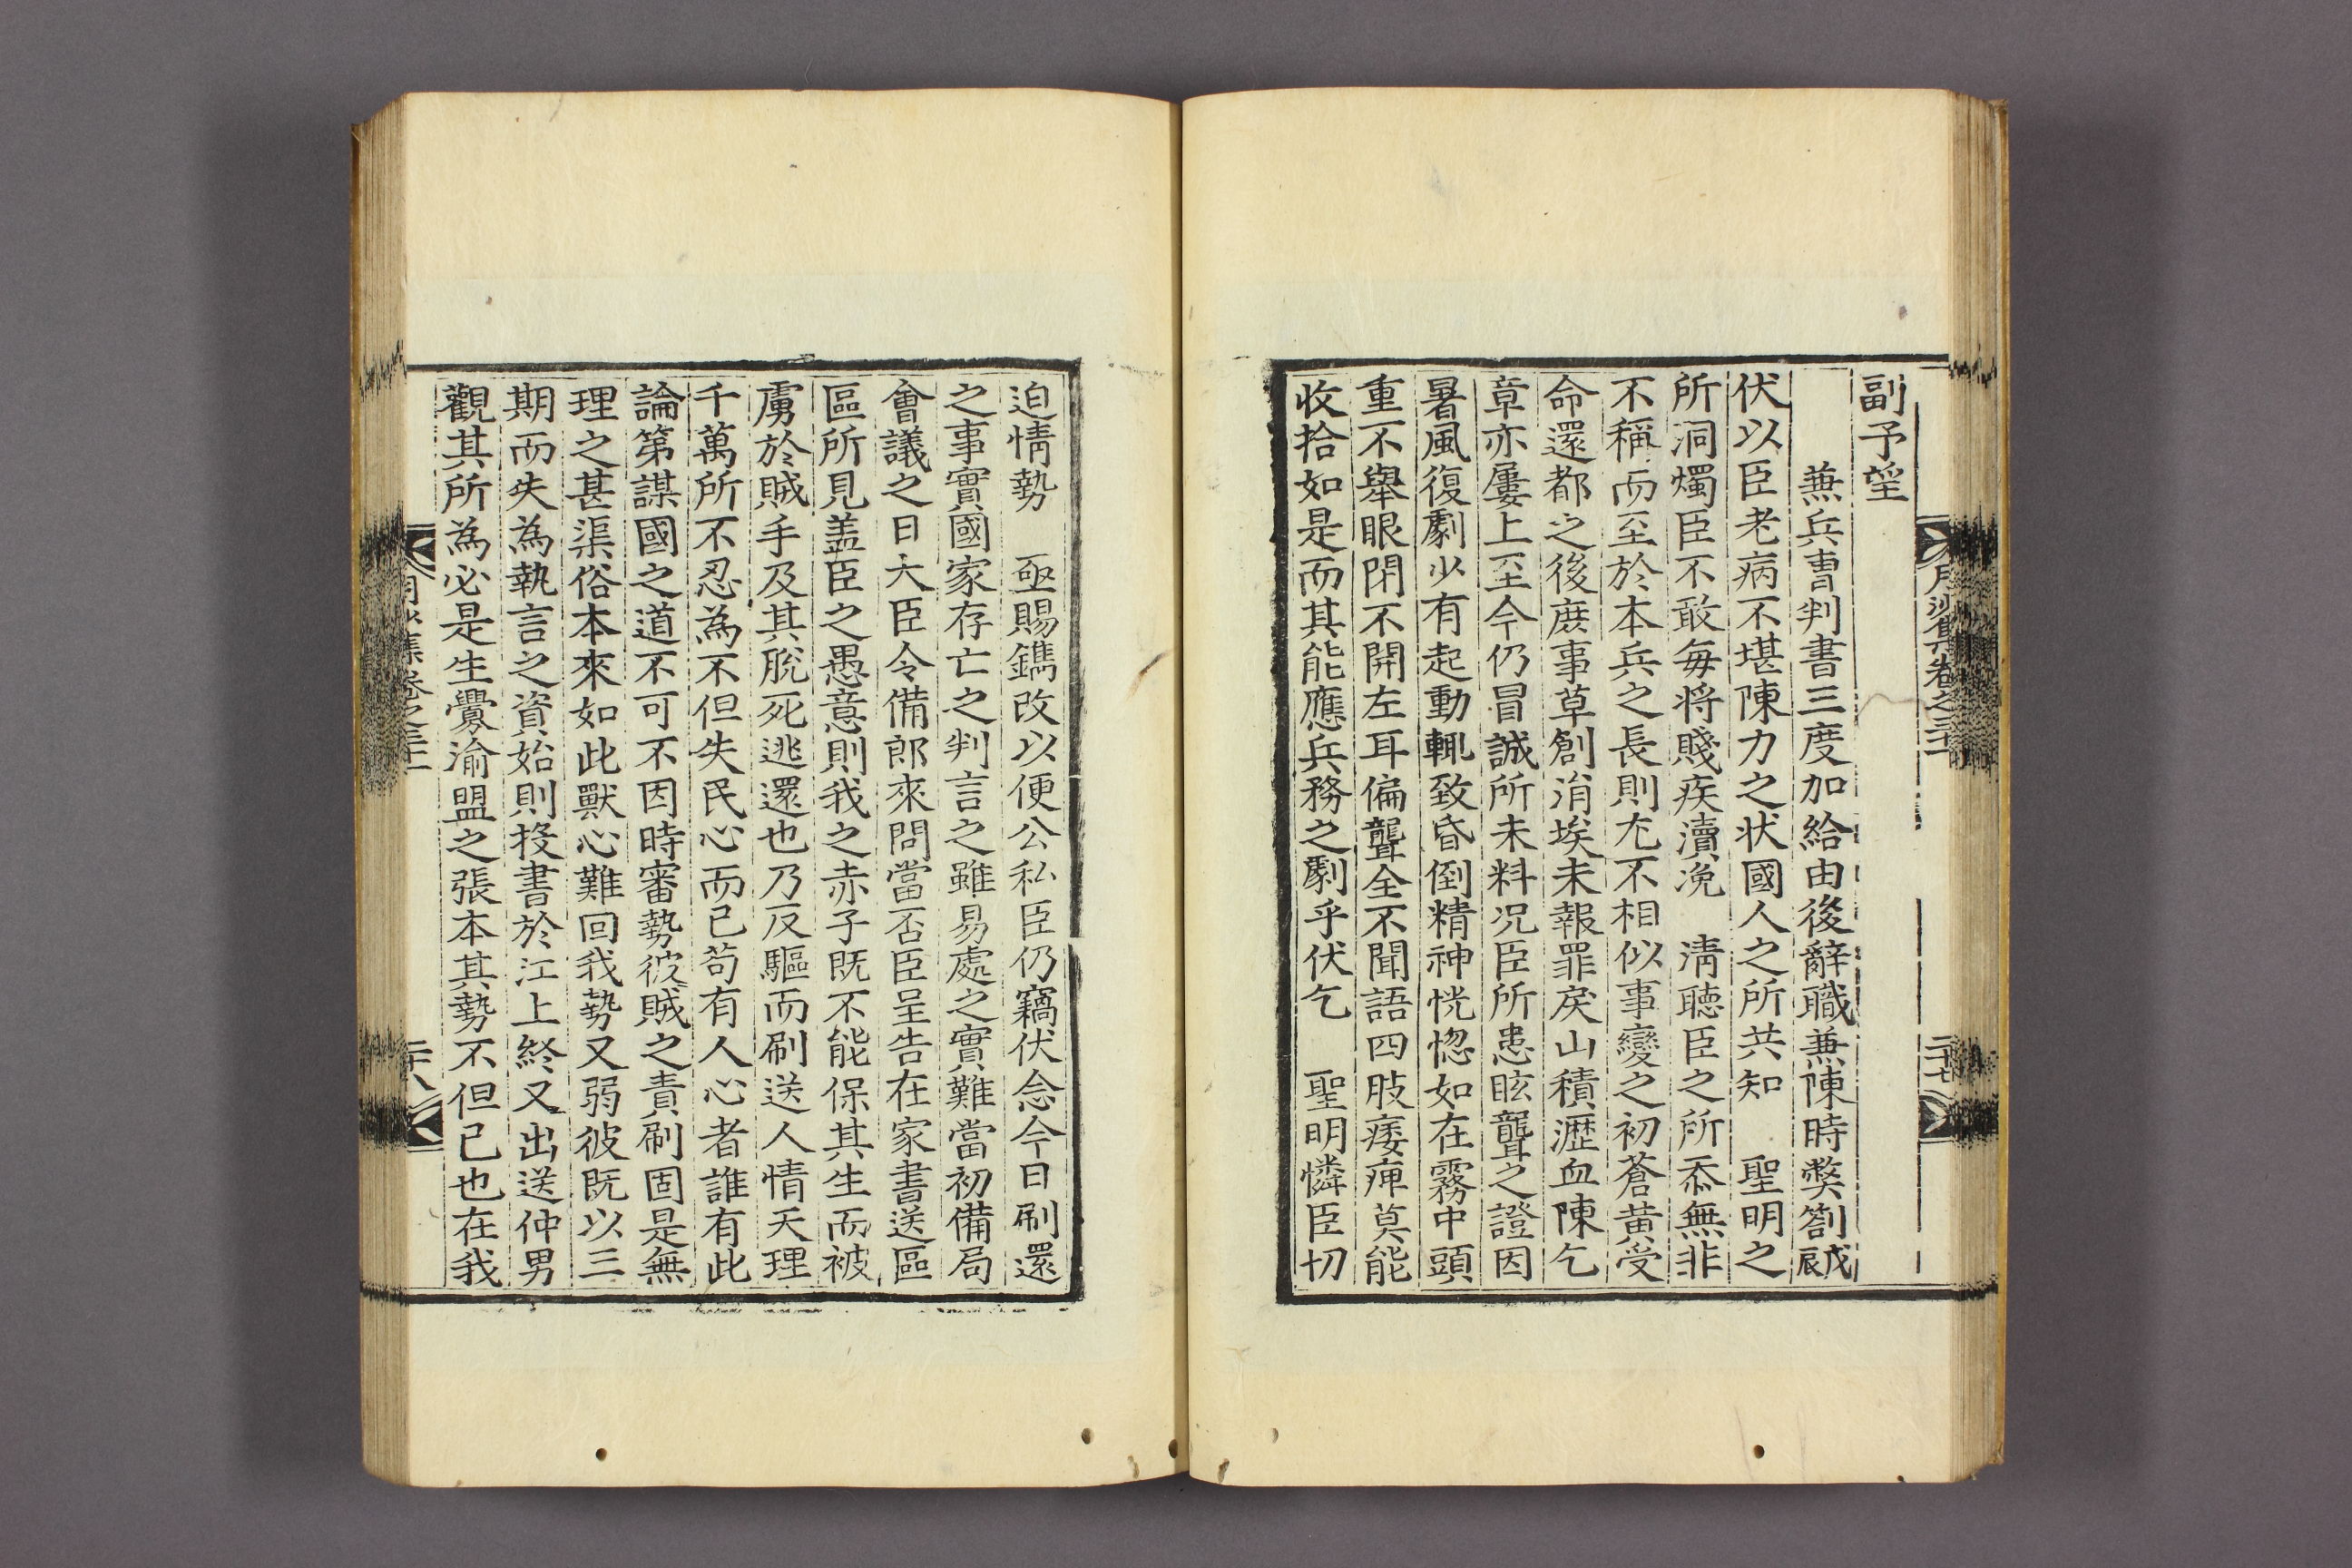 副予望
兼兵曹判書三度加給由後辭職兼陳時弊箚 戊辰
伏以臣老病不堪陳力之狀國人之所共知 聖明之
所洞燭臣不敢每將賤疾瀆浼 淸聽臣之所忝無非
不稱而至於本兵之長則尤不相似事變之初蒼黃受
命還都之後庶事草創涓埃未報罪戾山積瀝血陳乞
章亦屢上至今仍冒誠所未料况臣所患眩聾之證因
暑風復劇少有起動輒致昏倒精神恍惚如在霧中頭
重不舉眼閉不開左耳偏聾全不聞語四肢痿痺莫能
收拾如是而其能應兵務之劇乎伏乞 聖明憐臣切
月沙集卷之三十一
二十七
迫情勢 亟賜鐫改以便公私臣仍竊伏念今日刷還
之事實國家存亡之判言之雖易處之實難當初備局
會議之日大臣令備郎來問當否臣呈告在家書送區
區所見盖臣之愚意則我之赤子既不能保其生而被
虜於賊手及其脫死逃還也乃反驅而刷送人情天理
千萬所不忍為不但失民心而已苟有人心者誰有此
論第謀國之道不可不因時審勢彼賊之責刷固是無
理之甚渠俗本來如此獸心難回我勢又弱彼既以三
期而失為執言之資始則投書於江上終又出送仲男
觀其所為必是生釁渝盟之張本其勢不但已也在我
集卷之三十一
二十八